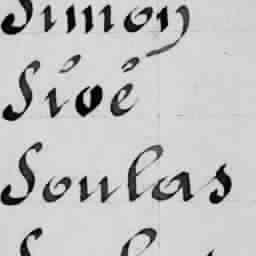 Simon
Sivé
Soulas